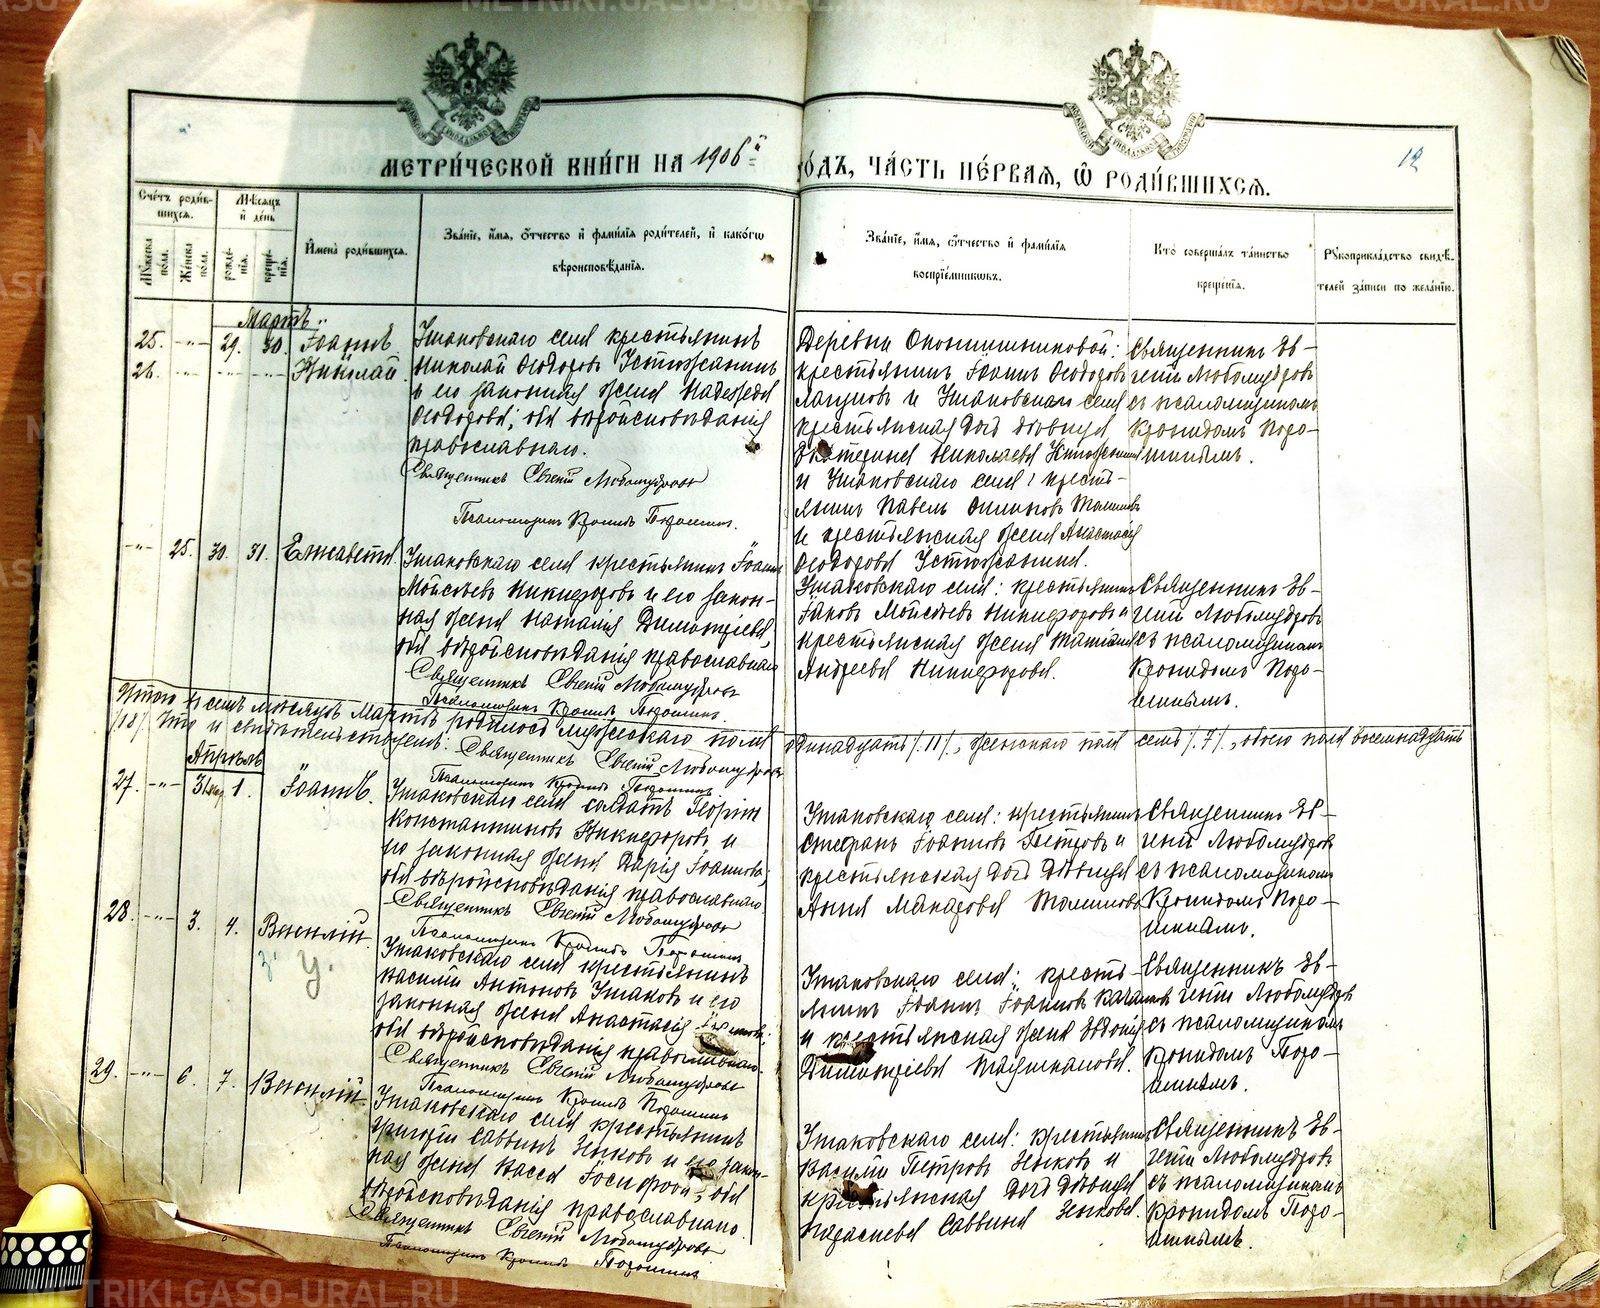 МЕТРИ́ЧЕСКОЙ КНИ́ГИ НА 1906й
ГО́ДЪ, ЧА́СТЬ ПЕ́РВАЯ, Ѡ РОДИ́ВШИХСЯ.
12
Сче́тъ роди́вшихся.
Му́жеска по́ла.
Же́нска по́ла.
Мѣ́сяцъ и де́нь
рожде́нія.
креще́нія.
И́мена роди́вшихся.
Зва́ніе, и́мя, ѻ́тчество и фами́лія роди́телей, и како́гѡ
вѣроисповѣ́данія.
Зва́ніе, и́мя, ѻ́тчество и фами́лія
воспріе́мниковъ.
Кто̀ соверша́лъ та́инство
креще́нія.
Рꙋкоприкла́дство свидѣ́-
телей за́писи по жела́нію.
Мартъ
25. -"- 29. 30. Іоаннъ
26. -"- -"- -"- Николай
Ушаковскаго села крестьянинъ
Николай Ѳеодоровъ Устюжанинъ
и его законная жена Надежда
Ѳеодорова; оба вѣроисповѣданія
православнаго.
Священникъ Евгеній Любомудровъ
Псаломщикъ Кронидъ Порошинъ.
Деревни
крестьянинъ Іоаннъ Ѳеодоровъ
и Ушаковскаго села
крестьянская дочь дѣвица
Екатерина Николаева Устюжанина
и Ушаковскаго села: кресть-
янинъ Павелъ
и крестьянская жена Анастасія
Ѳеодорова Устюжанина.
Священникъ Ев-
геній Любомудровъ
съ псаломщикомъ
Кронидомъ Поро-
шинымъ.
-"- 25. 30. 31. Елизавета
Ушаковскаго села крестьянинъ Іоаннъ
Моисѣевъ Никифоровъ и его закон-
ная жена Наталія Димитріева,
оба вѣроисповѣданія православнаго
Священникъ Евгеній Любомудровъ
Псаломщикъ Кронидъ Порошинъ.
Ушаковскаго села: крестьянинъ
Іаковъ Моисѣевъ Никифоровъ и
крестьянская жена
Андреева Никифорова.
Священникъ Ев-
геній Любомудровъ
съ псаломщикомъ
Кронидомъ Поро-
шинымъ.
Итого въ семъ мѣсяцѣ Мартѣ родилось мужескаго пола одинадцать /11/, женскаго пола семь /7/, обоего пола восемнадцать
/18/ Что и свидѣтельствуемъ: Священникъ Евгеній Любомудровъ
Псаломщикъ Кронидъ Порошинъ
Апрѣль
27. -"- 31 1. Іоаннъ.
Ушаковскаго села солдатъ Георгій
Константиновъ Никифоровъ и
его законная жена Дарія Іоаннова;
оба вѣроисповѣданія православнаго.
Священникъ Евгеній Любомудровъ
Псаломщикъ Кронидъ Порошинъ
Ушаковскаго села: крестьянинъ
Стефанъ Іоанновъ Петровъ и
крестьянская дочь дѣвица
Анна Макарова
Священникъ Ев-
геній Любомудровъ
съ псаломщикомъ
Кронидомъ Поро-
шинымъ.
28. -"- 3. 4. Василій.
У.
Ушаковскаго села крестьянинъ
Василій Антоновъ Ушаковъ и его
законная жена Анастасія
оба вѣроисповѣданія православнаго.
Священникъ Евгеній Любомудровъ
Псаломщикъ Кронидъ Порошинъ
Ушаковскаго села: кресть-
янинъ Іоаннъ Іоанновъ
и крестьянская жена Евдокія
Димитріева
Священникъ Ев-
геній Любомудровъ
съ псаломщикомъ
Кронидомъ Поро-
шинымъ.
29. -"- 6. 7. Василій.
Ушаковскаго села крестьянинъ
Григорій Саввинъ Зыковъ и его закон-
ная жена Васса оба
вѣроисповѣданія православнаго.
Священникъ Евгеній Любомудровъ
Псаломщикъ Кронидъ Порошинъ
Ушаковскаго села: крестьянинъ
Василій Петровъ Зыковъ и
крестьянская дочь дѣвица
Параскева Саввина Зыкова.
Священникъ Ев-
геній Любомудровъ
съ псаломщикомъ
Кронидомъ Поро-
шинымъ.
METRIKI.GASO-URAL.RU